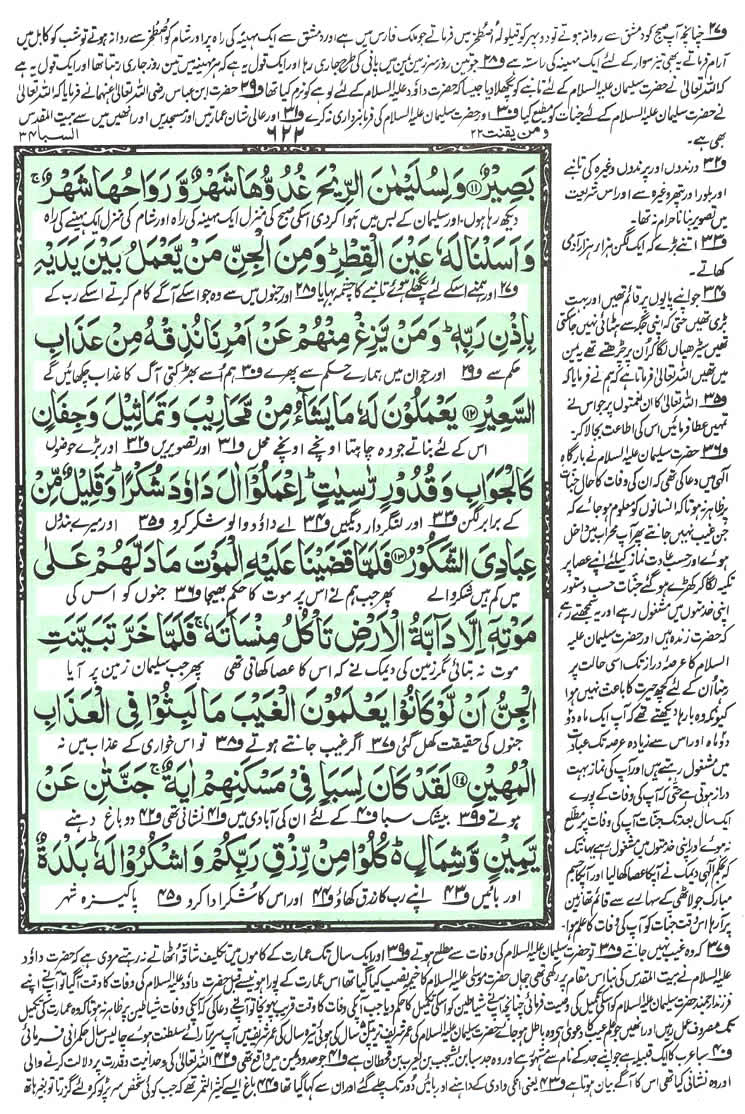 ف۲۷ چنانچہ آپ صبح کو دمشق سے روانہ ہوتے تو دوپہر کو قیلولہ اصطخر میں فرماتے جو ملک فارس میں ہے اور دمشق سے ایک مہینہ کی راہ پر اور شام کو اصطخر سے روانہ ہوتے تو شب کو کابل میں
آرام فرماتے یہ بھی تیز سوار کے لئے ایک مہینہ کا راستہ ہے ف۲۸ جو تین روز سرزمین یمن میں پانی کی طرح جاری رہا اور ایک قول یہ ہے کہ ہر مہینہ میں تین روز جاری رہتا تھا اور ایک قول یہ ہے
کہ اللہ تعالیٰ نے حضرت سلیمان علیہ السلام کے لئے تانبے کو پگھلا دیا جیسا کہ حضرت داؤد علیہ السلام کے لئے لوہے کو نرم کیا تھا ف۲۹ حضرت ابن عباس رضی اللہ تعالیٰ عنہما نے فرمایا کہ اللہ تعالیٰ
نے حضرت سلیمان علیہ السلام کے لئے جنات کو مطیع کیا ف۳۰ اور حضرت سلیمان علیہ السلام کی فرمانبرداری نہ کرے ف۳۱ اور عالی شان عمارتیں اور مسجدیں اور انھیں میں سے بیت المقدس
بھی ہے۔
ومن یقنت ۲۲ ۶۲۲ السبا ۳۴
بَصِیْرٌ ﴿۱۱﴾ وَ لِسُلَیْمٰنَ الرِّیْحَ غُدُوُّهَا شَهْرٌ وَّ رَوَاحُهَا شَهْرٌ ۚ
دیکھ رہا ہوں اور سلیمان کے بس میں ہوا کردی اسکی صبح کی منزل ایک مہینہ کی راہ اور شام کی منزل ایک مہینے کی راہ
وَ اَسَلْنَا لَهٗ عَیْنَ الْقِطْرِ ؕ وَ مِنَ الْجِنِّ مَنْ یَّعْمَلُ بَیْنَ یَدَیْهِ
ف۲۷ اور ہم نے اسکے لئے پگھلے ہوئے تانبے کا چشمہ بہایا ف۲۸ اور جنوں میں سے وہ جو اسکے آگے کام کرتے اسکے رب کے
بِاِذْنِ رَبِّهٖ ؕ وَ مَنْ یَّزِغْ مِنْهُمْ عَنْ اَمْرِنَا نُذِقْهُ مِنْ عَذَابِ
حکم سے ف۲۹ اور جو ان میں ہمارے حکم سے پھرے ف۳۰ ہم اسے بھڑکتی آگ کا عذاب چکھائیں گے
السَّعِیْرِ ﴿۱۲﴾ یَعْمَلُوْنَ لَهٗ مَا یَشَآءُ مِنْ مَّحَارِیْبَ وَ تَمَاثِیْلَ وَ جِفَانٍ
اس کے لئے بناتے جو وہ چاہتا اونچے اونچے محل ف۳۱ اور تصویریں ف۳۲ اور بڑے حوضوں
كَالْجَوَابِ وَ قُدُوْرٍ رّٰسِیٰتٍ ؕ اِعْمَلُوْۤا اٰلَ دَاوٗدَ شُكْرًا ؕ وَ قَلِیْلٌ مِّنْ
کے برابر لگن ف۳۳ اور لنگر دار دیگیں ف۳۴ اے داؤد والو شکر کرو ف۳۵ اور میرے بندوں
عِبَادِیَ الشَّكُوْرُ ﴿۱۳﴾ فَلَمَّا قَضَیْنَا عَلَیْهِ الْمَوْتَ مَا دَلَّهُمْ عَلٰی
میں کم ہیں شکر والے پھر جب ہم نے اس پر موت کا حکم بھیجا ف۳۶ جنوں کو اس کی
مَوْتِهٖۤ اِلَّا دَآبَّةُ الْاَرْضِ تَاْكُلُ مِنْسَاَتَهٗ ۚ فَلَمَّا خَرَّ تَبَیَّنَتِ
موت نہ بتائی مگر زمین کی دیمک نے کہ اس کا عصا کھاتی تھی پھر جب سلیمان زمین پر آیا
الْجِنُّ اَنْ لَّوْ كَانُوْا یَعْلَمُوْنَ الْغَیْبَ مَا لَبِثُوْا فِی الْعَذَابِ
جنوں کی حقیقت کھل گئی ف۳۷ اگر غیب جانتے ہوتے ف۳۸ تو اس خواری کے عذاب میں نہ
الْمُهِیْنِ ﴿۱۴﴾ لَقَدْ كَانَ لِسَبَاٍ فِیْ مَسْكَنِهِمْ اٰیَةٌ ۚ جَنَّتٰنِ عَنْ
ہوتے ف۳۹ بیشک سبا ف۴۰ کے لئے ان کی آبادی میں ف۴۱ نشانی تھی ف۴۲ دو باغ دہنے
یَّمِیْنٍ وَّ شِمَالٍ ؕ۬ كُلُوْا مِنْ رِّزْقِ رَبِّكُمْ وَ اشْكُرُوْا لَهٗ ؕ بَلْدَةٌ
اور بائیں ف۴۳ اپنے رب کا رزق کھاؤ ف۴۴ اور اس کا شکر ادا کرو ف۴۵ پاکیزہ شہر
ف۳۲ درندوں اور پرندوں وغیرہ کی تانبے
اور بلور اور پتھر وغیرہ سے اور اس شریعت
میں تصویر بنانا حرام نہ تھا۔
ف۳۳ اتنے بڑے کہ ایک لگن میں ہزار ہزار آدمی
کھاتے۔
ف۳۴ جو اپنے پایوں پر قائم تھیں اور بہت
بڑی تھیں حتی کہ اپنی جگہ سے ہٹائی نہیں جاسکتی
تھیں سیڑھیاں لگا کر ان پر چڑھتے تھے یہ یمن
میں تھیں اللہ تعالیٰ فرماتا ہے کہ ہم نے فرمایا کہ
ف۳۵ اللہ تعالیٰ کا ان نعمتوں پر جو اس نے
تمہیں عطا فرمائیں اس کی اطاعت بجا لاکر۔
ف۳۶ حضرت سلیمان علیہ السلام نے بارگاہ
الٰہی میں دعا کی تھی کہ ان کی وفات کا حال جنات
پر ظاہر نہ ہو تاکہ انسانوں کو معلوم ہوجائے کہ
جن غیب نہیں جانتے پھر آپ محراب میں داخل
ہوئے اور حسب عادت نماز کیلئے اپنے عصا پر
تکیہ لگا کر کھڑے ہوگئے جنات حسب دستور
اپنی خدمتوں میں مشغول رہے اور یہ سمجھتے رہے
کہ حضرت زندہ ہیں اور حضرت سلیمان علیہ
السلام کا عرصۂ دراز تک اسی حال پر
رہنا ان کے لئے کچھ حیرت کا باعث نہیں ہوا
کیونکہ وہ بارہا دیکھتے تھے کہ آپ ایک ماہ دو دو
ماہ اور اس سے زیادہ عرصہ تک عبادت
میں مشغول رہتے ہیں اور آپ کی نماز بہت
دراز ہوتی ہے حتی کہ آپ کی وفات کے پورے
ایک سال بعد تک جنات آپ کی وفات پر مطلع
نہ ہوئے اور اپنی خدمتوں میں مشغول رہے یہاں تک
کہ بحکم الٰہی دیمک نے آپ کا عصا کھالیا اور آپ کا جسم
مبارک جو لاٹھی کے سہارے سے قائم تھا زمین
پر آرہا اس وقت جنات کو آپ کی وفات کا علم ہوا۔
ف۳۷ کہ وہ غیب نہیں جانتے ف۳۸ تو حضرت سلیمان علیہ السلام کی وفات سے مطلع ہوتے ف۳۹ اور ایک سال تک عمارت کے کاموں میں تکلیف شاقہ اٹھاتے نہ رہتے مروی ہے کہ حضرت داؤد
علیہ السلام نے بیت المقدس کی بنا اس مقام پر رکھی تھی جہاں حضرت موسیٰ علیہ السلام کا خیمہ نصب کیا گیا تھا اس عمارت کے پورا ہونے سے قبل حضرت داؤد علیہ السلام کی وفات کا وقت آگیا تو آپ نے اپنے
فرزند ارجمند حضرت سلیمان علیہ السلام کو اس کی تکمیل کی وصیت فرمائی چنانچہ آپ نے شیاطین کو اسکی تکمیل کا حکم دیا جب آپ کی وفات کا وقت قریب پہونچا تو آپ نے دعا کی کہ آپ کی وفات شیاطین پر ظاہر نہ ہو تاکہ وہ عمارت کی تکمیل
تک مصروف عمل رہیں اور انھیں جو علم غیب کا دعویٰ ہے وہ باطل ہوجائے حضرت سلیمان علیہ السلام کی عمر شریف ترپن سال کی ہوئی تیرہ سال کی عمر شریف میں آپ سریر آرائے سلطنت ہوئے چالیس سال حکمرانی فرمائی
ف۴۰ سبا عرب کا ایک قبیلہ ہے جو اپنے جد کے نام سے مشہور ہے اور وہ جد سبا بن یشجب بن یعرب بن قحطان ہے ف۴۱ جو حدود یمن میں واقع تھی ف۴۲ اللہ تعالیٰ کی وحدانیت و قدرت پر دلالت کرنے والی
اور وہ نشانی کیا تھی اس کا آگے بیان ہوتا ہے ف۴۳ یعنی انکی وادی کے داہنے اور بائیں دور تک چلے گئے اور ان سے کہا گیا تھا ف۴۴ باغ ایسے کثیر الثمر تھے کہ جب کوئی شخص سر پر ٹوکرہ لئے گزرتا تو بغیر ہاتھ